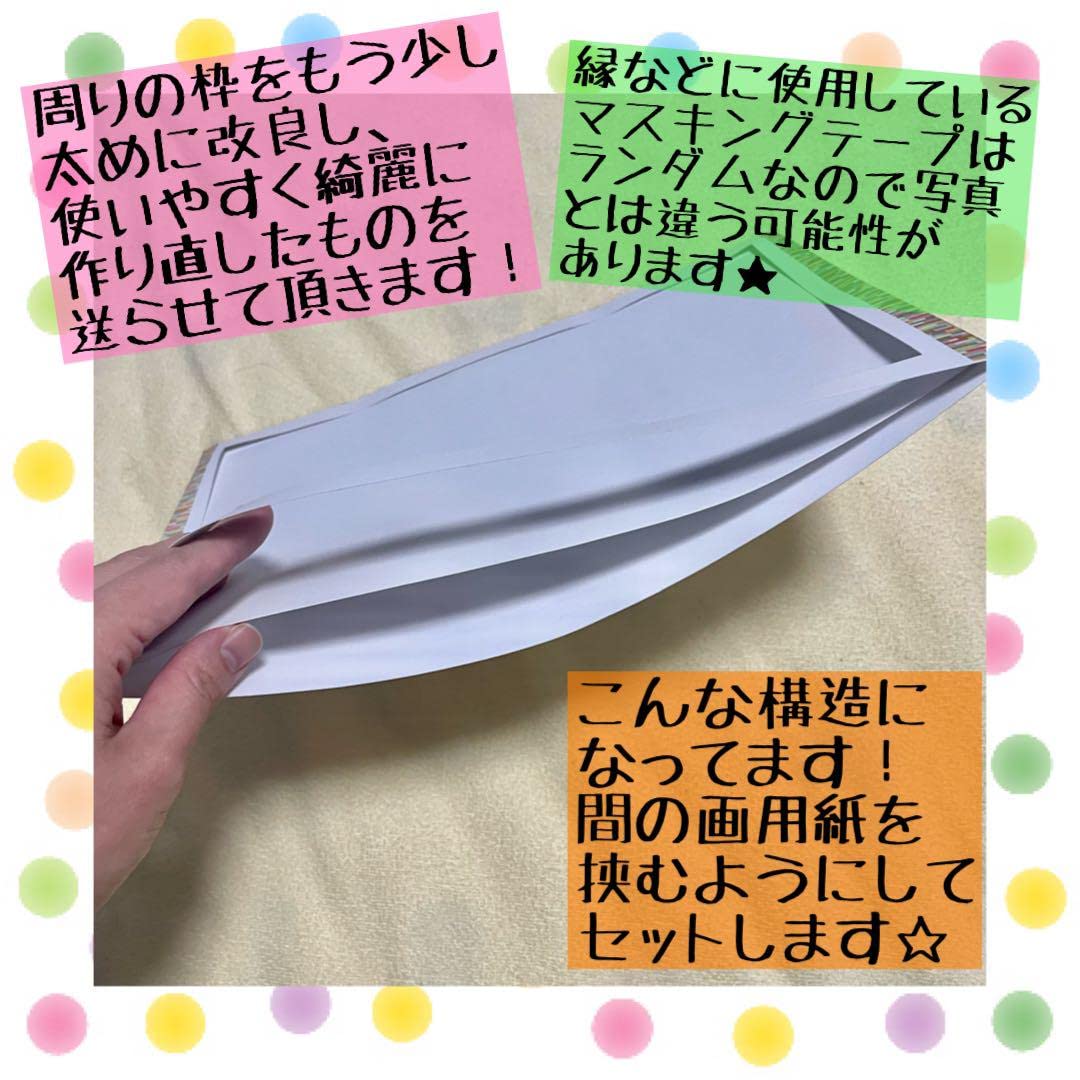 周りの枠をもう少し
太めに改良し、
使いやすく綺麗に
作り直したものを
送らせて頂きます！
縁などに使用している
マスキングテープは
ランダムなので写真
とは違う可能性が
あります★
こんな構造に
なってます！
間の画用紙を
挟むようにして
セットします☆